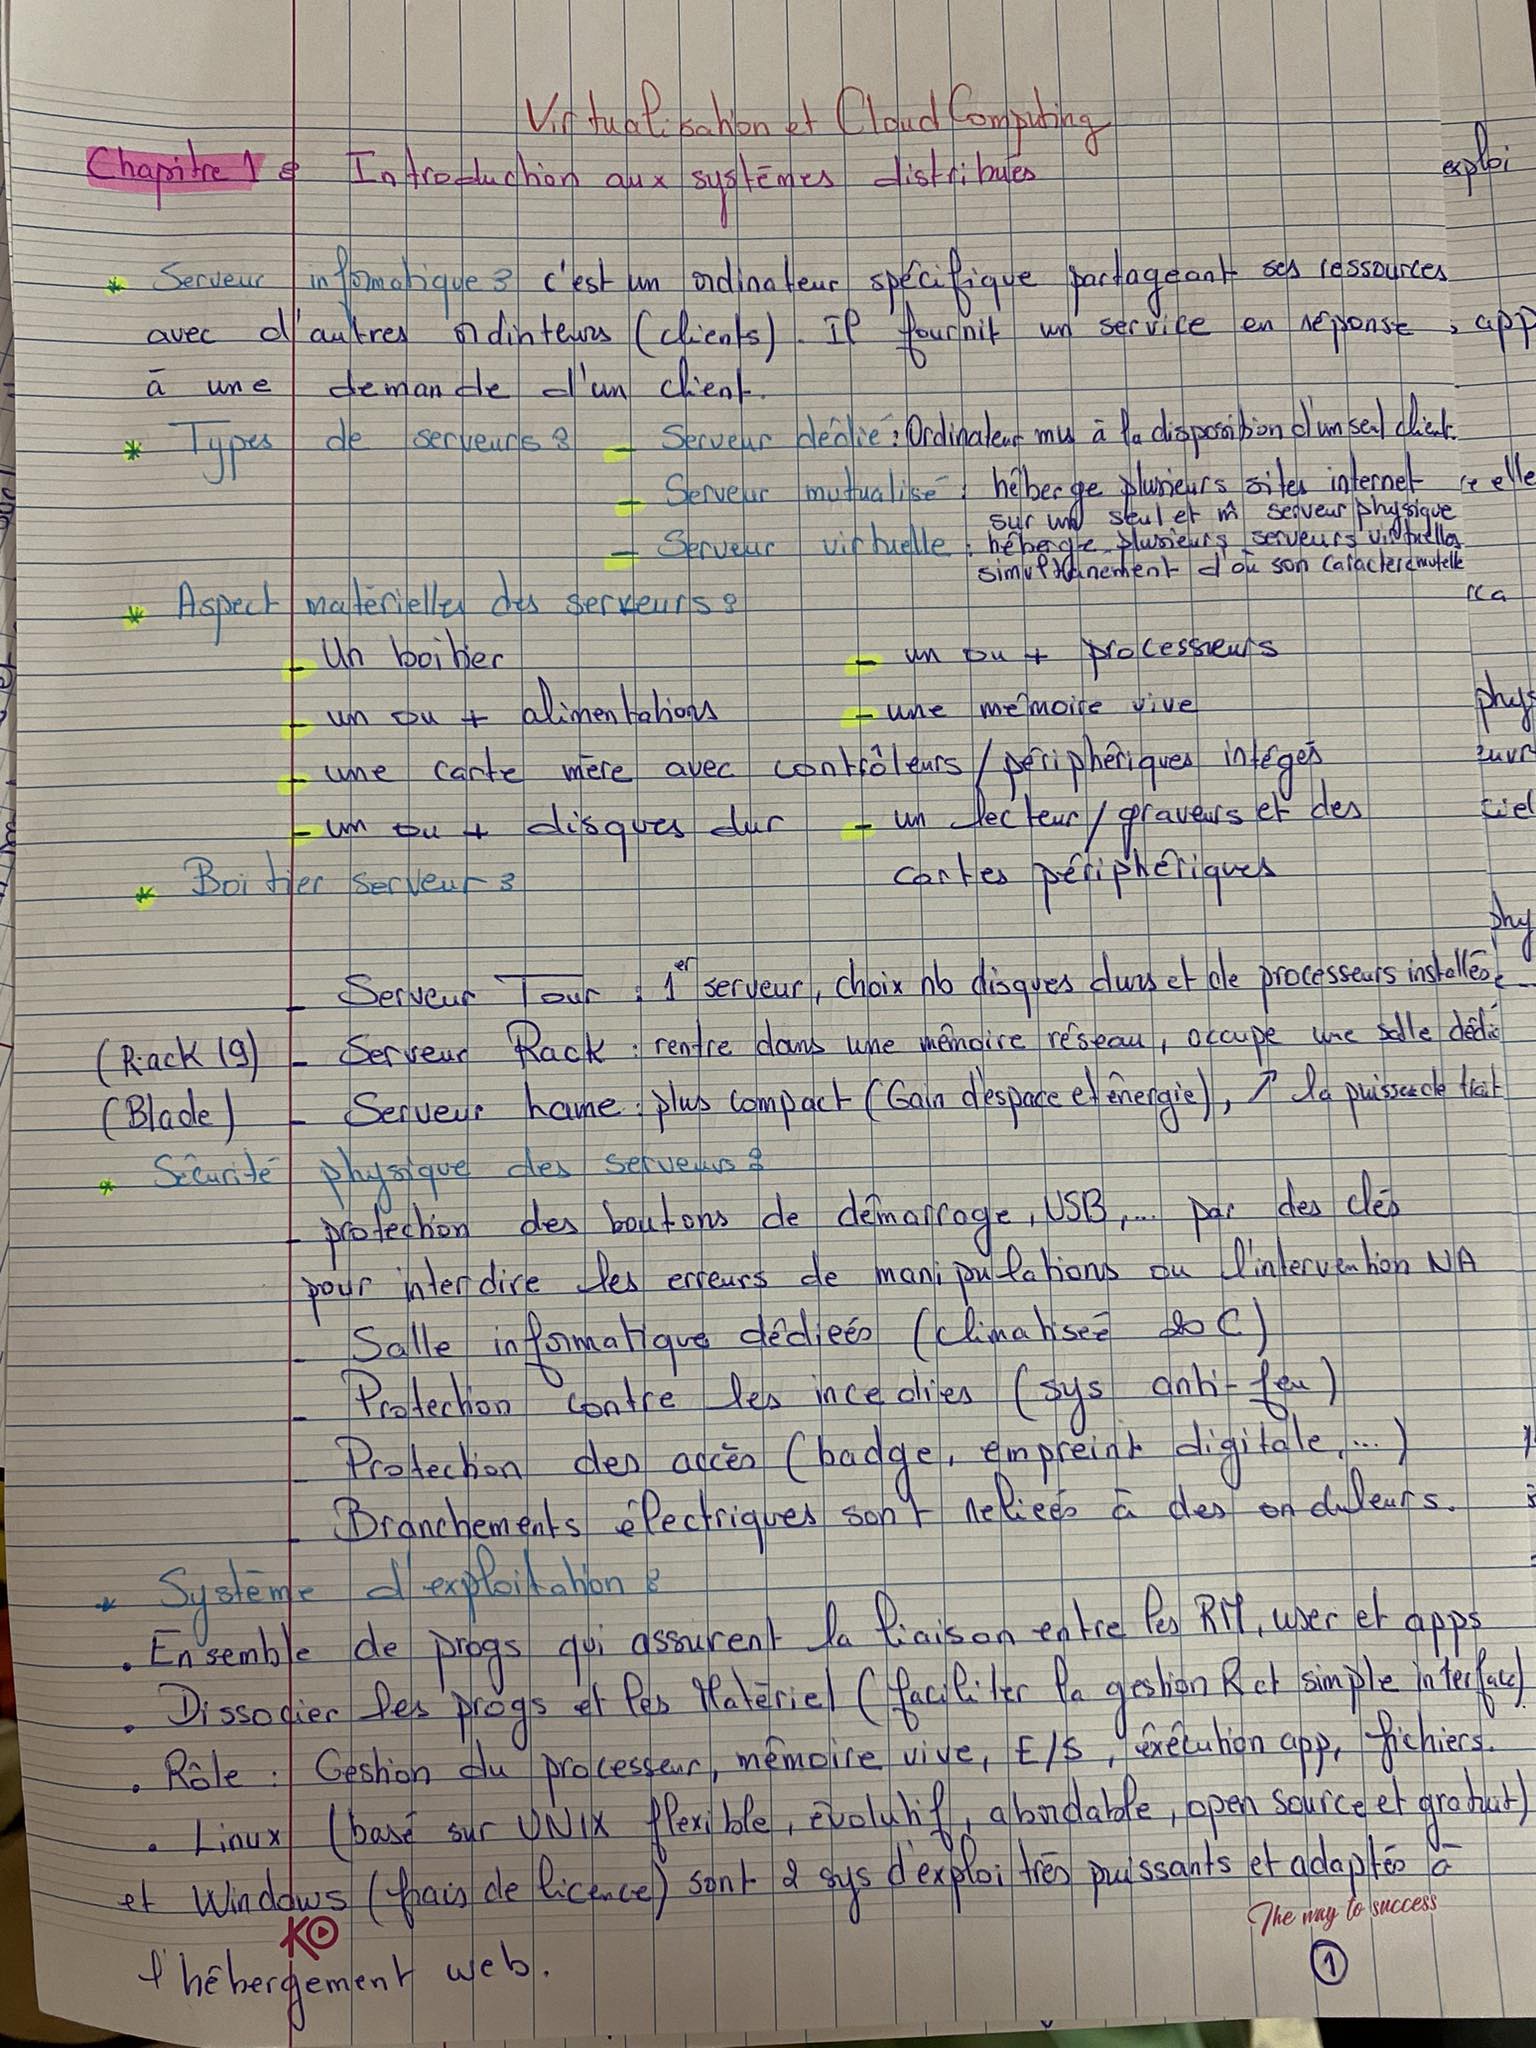 Virtualisation et Cloud Computing
Chapitre 1 : Introduction aux systèmes distribués
exploi
* Serveur informatique : c'est un ordinateur spécifique partageant ses ressources
avec d'autres ordinteurs (clients). Il fournit un service en réponse
, app
à une demande d'un client.
* Types de serveurs : - Serveur dédié : Ordinateur mis à la disposition d'un seul client.
- Serveur mutualisé : héberge plusieurs sites internet
sur un seul et m̂ serveur physique
- Serveur virtuelle : héberge plusieurs serveurs virtuelles
simultanement d'où son caractère mutelle
* Aspect matérielles des serveurs :
- Un boitier - un ou + processeurs
- un ou + alimentations - une mémoire vive
phys
- une carte mère avec contrôleurs / périphériques intégés
- un ou + disques dur - un lecteur / graveurs et des
ciel
cartes périphériques
* Boitier serveur :
phy
- Serveur Tour : 1er serveur, choix nb disques durs et de processeurs installés.
(Rack 19) - Serveur Rack : rentre dans une mémoire réseau, occupe une salle dédié
(Blade) - Serveur lame : plus compact (Gain d'espace et énergie), ↗ la puissance de trait
* Sécurité physique des serveurs :
- protection des boutons de démarrage, USB,... par des clés
pour interdire les erreurs de manipulations ou l'intervention NA
- Salle informatique dédiées (climatiseé 20 C)
- Protection contre les incedies (sys anti-feu)
- Protection des accès (badge, empreint digitale,...)
- Branchements électriques sont relieés à des onduleurs.
* Système d'exploitation :
. Ensemble de progs qui assurent la liaison entre les RM, user et apps
. Dissocier les progs et les Matériel (faciliter la gestion R et simple interface)
. Rôle : Gestion du processeur, mémoire vive, E/S, éxécution app, fichiers.
. Linux (basé sur UNIX flexible, évolutif, abordable, open source et gratuit)
et Windows (frais de licence) sont 2 sys d'exploi très puissants et adaptés à
l'hébergement web.
KO
The way to success
1